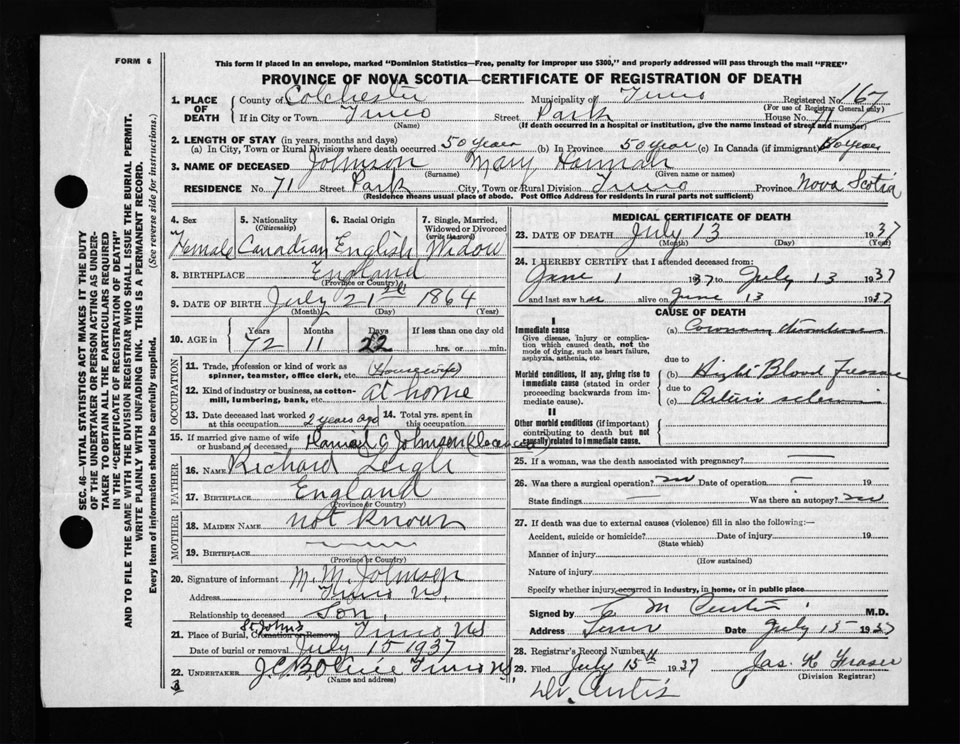 FORM 6
This form if placed in an envelope, marked "Dominion Statistics—Free, penalty for improper use $300," and properly addressed will pass through the mail "FREE"
PROVINCE OF NOVA SCOTIA—CERTIFICATE OF REGISTRATION OF DEATH
1. PLACE OF DEATH County of Colchester Municipality of Truro Registered No. 167
(For use of Registrar General only)
If in City or Town Truro Street Park House No. 71
(Name) (If death occurred in a hospital or institution, give the name instead of street and number)
2. LENGTH OF STAY (in years, months and days)
(a) In City, Town or Rural Division where death occurred 50 years (b) In Province 50 year (c) In Canada (if immigrant) 50 years
3. NAME OF DECEASED Johnson Mary Hannah
(Surname) (Given name or names)
RESIDENCE No. 71 Street Park City, Town or Rural Division Truro Province Nova Scotia
(Residence means usual place of abode. Post Office Address for residents in rural parts not sufficient)
4. Sex 5. Nationality (Citizenship) 6. Racial Origin 7. Single, Married, Widowed or Divorced (write the word)
Female Canadian English Widow
8. BIRTHPLACE England
(Province or Country)
9. DATE OF BIRTH July 21st 1864
(Month) (Day) (Year)
10. AGE in Years Months Days If less than one day old
72 11 22 hrs. or min.
OCCUPATION
11. Trade, profession or kind of work as spinner, teamster, office clerk, etc. (Housewife)
12. Kind of industry or business, as cotton-mill, lumbering, bank, etc. at home
13. Date deceased last worked at this occupation 2 years ago 14. Total yrs. spent in this occupation
15. If married give name of wife or husband of deceased G Johnson
FATHER
16. NAME Richard Leigh
17. BIRTHPLACE England
(Province or Country)
MOTHER
18. MAIDEN NAME not known
19. BIRTHPLACE
(Province or Country)
20. Signature of informant M. M. Johnson
Address Truro NS.
Relationship to deceased Son
21. Place of Burial, Cremation or Removal St Johns Truro NS
Date of burial or removal July 15 1937
22. UNDERTAKER Truro NS
(Name and address)
MEDICAL CERTIFICATE OF DEATH
23. DATE OF DEATH July 13 1937
(Month) (Day) (Year)
24. I HEREBY CERTIFY that I attended deceased from:
June 1 1937 to July 13 1937
and last saw her alive on June 13 1937
CAUSE OF DEATH
I
Immediate cause
Give disease, injury or complication which caused death, not the mode of dying, such as heart failure, asphyxia, asthenia, etc.
(a) Coronary thrombosis
due to
Morbid conditions, if any, giving rise to immediate cause (stated in order proceeding backwards from immediate cause).
(b) High Blood Pressure
due to
(c) Arterio sclerosis
II
Other morbid conditions (if important) contributing to death but not causally related to immediate cause.
25. If a woman, was the death associated with pregnancy? —
26. Was there a surgical operation? no Date of operation — 19
State findings — Was there an autopsy? no
27. If death was due to external causes (violence) fill in also the following:—
Accident, suicide or homicide? Date of injury 19
(State which)
Manner of injury
(How sustained)
Nature of injury
Specify whether injury occurred in industry, in home, or in public place
Signed by C M Curtis M.D.
Address Truro Date July 15 1937
28. Registrar's Record Number
29. Filed July 15th 1937 Jas. K Fraser
(Division Registrar)
Dr. Curtis
SEC. 46—VITAL STATISTICS ACT MAKES IT THE DUTY OF THE UNDERTAKER OR PERSON ACTING AS UNDERTAKER TO OBTAIN ALL THE PARTICULARS REQUIRED IN THE "CERTIFICATE OF REGISTRATION OF DEATH" AND TO FILE THE SAME WITH THE DIVISION REGISTRAR WHO SHALL ISSUE THE BURIAL PERMIT.
WRITE PLAINLY WITH UNFADING INK. THIS IS A PERMANENT RECORD.
Every item of information should be carefully supplied. (See reverse side for instructions.)